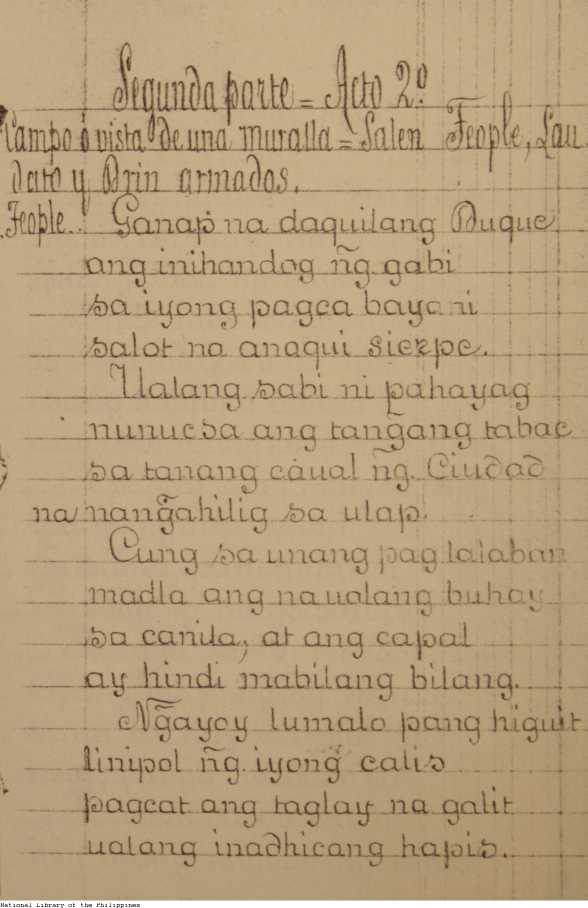 Segunda parte = Acto 2º
Campo ó vista de una muralla = Salen Feople, Lau
dato y Brin armados.
Feople. Ganap na daquilang Duque
ang inihandog ñg. gabi
sa iyong pagca bayani
salot na anaqui sierpe.
Ualang sabi ni pahayag
nunucsa ang tang̃ang tabac
sa tanang cáual ñg. Ciudad
na nang̃ahilig sa ulap.
Cung sa unang paglalaban
madla ang naualang buhay
sa canila, at ang capal
ay hindi mabilang bilang.
Ng̃ayoy lumalo pang higuit
linipol ñg. iyong̃ calis
pagcat ang taglay na galit
ualang inadhicang hapis.
National Library of the Philippines